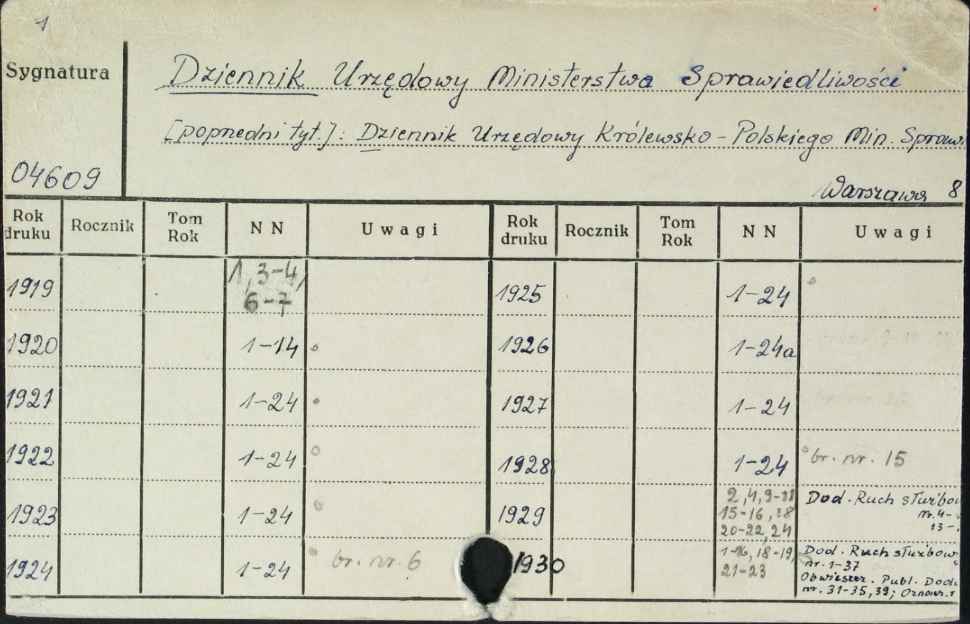 1
Sygnatura
Dziennik Urzędowy Ministerstwa Sprawiedliwości
[poprzedni tyt.]: Dziennik Urzędowy Królewsko-Polskiego Min. Spraw.
04609
Warszawa 8
Rok druku Rocznik Tom Rok NN Uwagi Rok druku Rocznik Tom Rok NN Uwagi
1919 1, 3-4, 6-7 1925 1-24
1920 1-14 1926 1-24a
1921 1-24 1927 1-24
1922 1-24 1928 1-24 br. nr. 15
1923 1-24 1929 2, 4, 15-16, 20-22, 24 Dod. Ruch służbow
nr. 4-
13-
1924 1-24 br. nr. 6 1930 1-16, 18-19, 21-23 Dod. Ruch służbow
nr. 1-37
Obwieszcz. Publ. Dod.
nr. 31-35, 39;